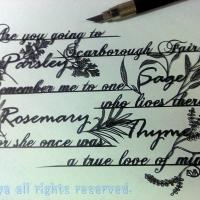 Are you going to
Scarborough Fair
Parsley
Sage
remember me to one
who lives there
Rosemary
Thyme
for she once was
a true love of mine
all rights reserved.